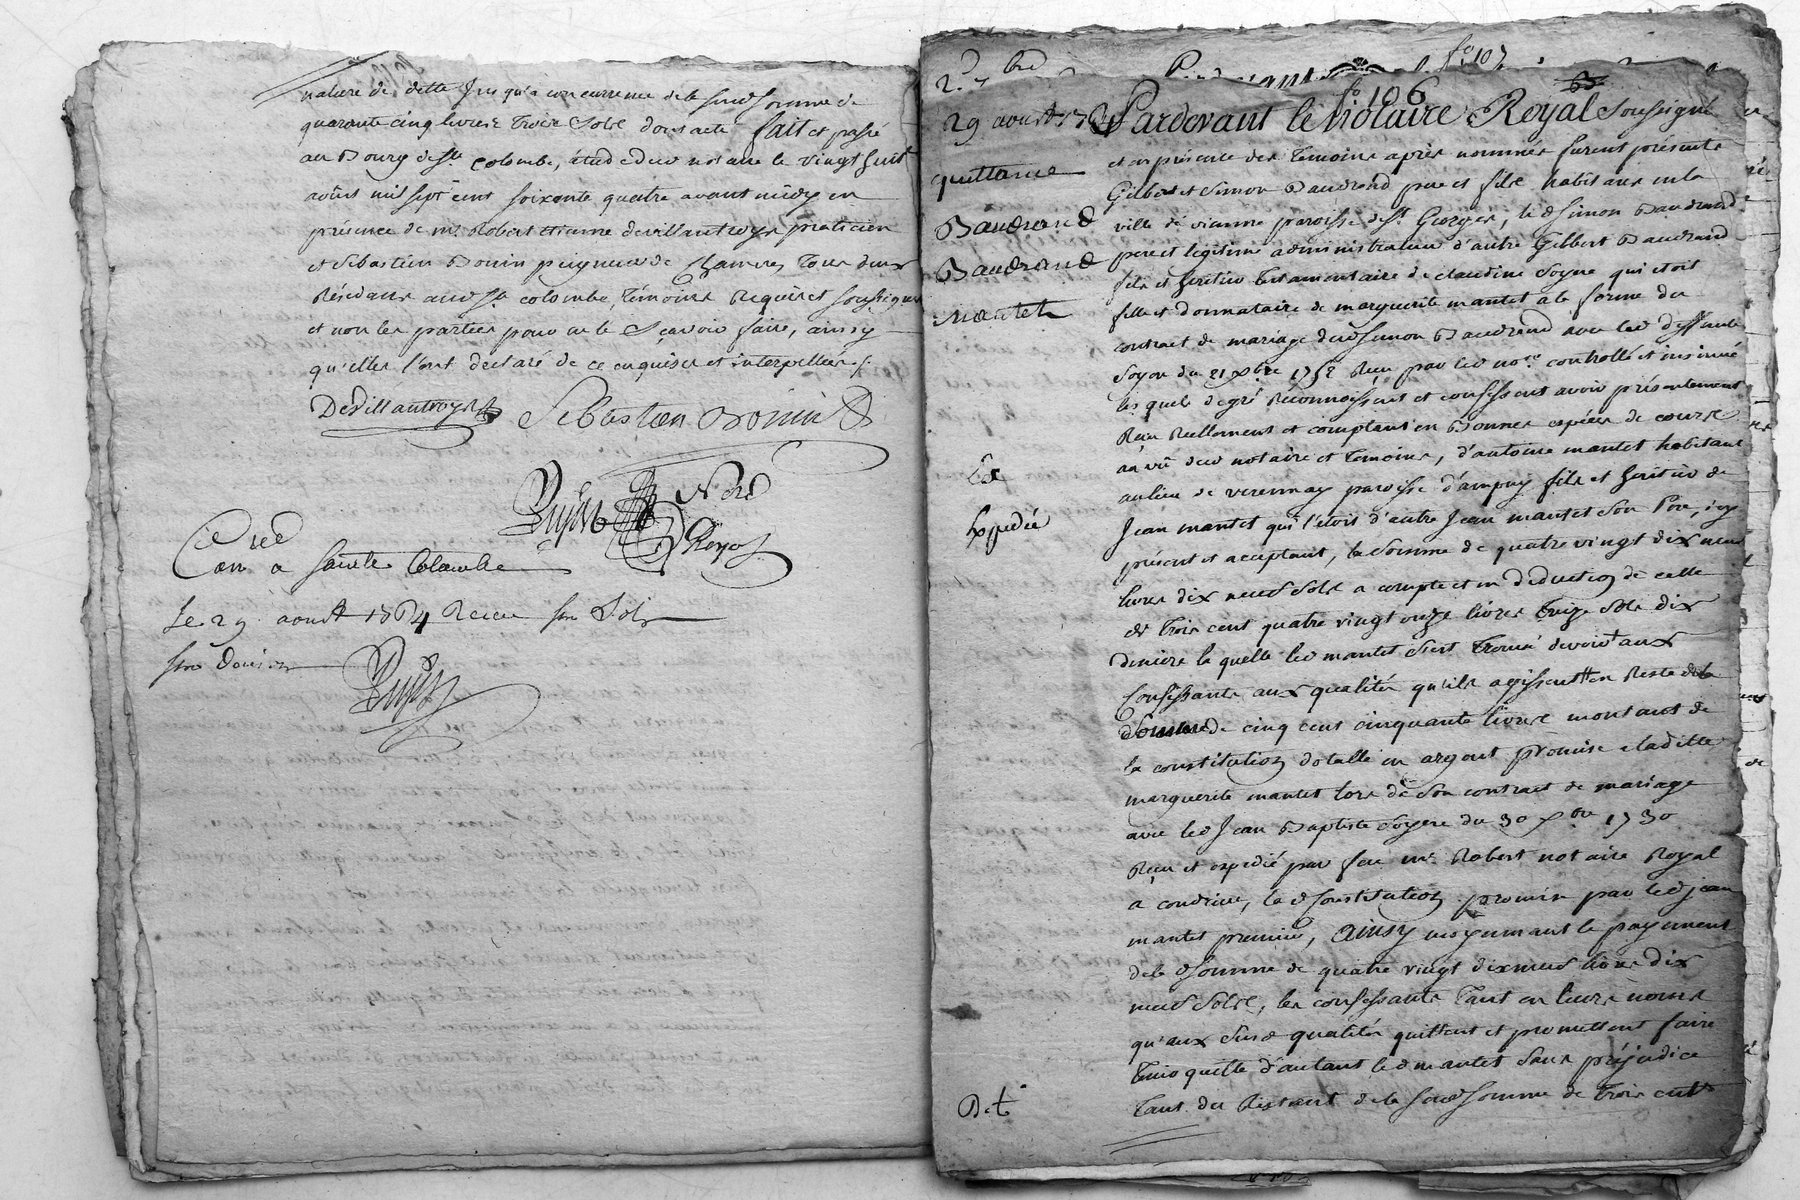 nature de dette Jusqu'a concurrence de la susd somme de
quarante cinq livres trois sols dont acte fait et passé
au Bourg de Ste colombe, étude du d notaire le vingt huit
août mil sept cent soixante quatre avant midy en
présence de me Robert etienne devillantroys praticien
et Sébastien Bonin peigneur de chanvres tous deux
Résidans aud Ste colombe, témoins Requis et soussignés
et non les parties pour ne le sçavoir faire, ainsy
qu'elles l'ont declaré de ce enquises et interpellées /.
Devillantroys
Sebastien Bonin
Nore
Royal
Con a Sainte Colombe
Le 29 aoust 1764 Receu Sols
29 aoust
quittance
Baudrand
Baudrand
Mantet
Expedié
fo 107
fo 106
Pardevant le Notaire Royal soussigné
et en présence des temoins après nommés furent présents
Gilbert et Simon Baudrand pere et fils habitans en la
ville de vienne paroisse de St Georges, led Simon Baudrand
pere et legitime administrateur d'autre Gilbert Baudrand
fils et heritier testamentaire de claudine Soyere qui etoit
fille et donnataire de marguerite mantet a la forme du
contract de mariage dud Simon Baudrand avec lad deffunte
Soyere du 21 xbre 1758 Reçu par led nore controllé et insinué
lesquels de gré Reconnoissent et confessent avoir présentement
Reçu Réellement et comptant en bonnes espéces de cours
au vû dud notaire et temoins, d'antoine mantet habitant
au lieu de verennay paroisse d'ampuy fils et heritier de
Jean mantet qui l'étoit d'autre Jean mantet son Pere, icy
présent et acceptant, la somme de quatre vingt dix neuf
livres dix neuf sols a compte et en deduction de celle
de trois cent quatre vingt onze livres treize sols dix
deniers la quelle led mantet s'est trouvé devoir aux
Confessants aux qualités qu'ils agissent en Reste de la
somme de cinq cent cinquante livres montant de
la constitution dotalle en argent promise a ladite
marguerite mantet lors de son contract de mariage
avec led Jean Baptiste Soyere du 30 xbre 1730
Reçu et expedié par feu me Robert notaire Royal
a condrieu, lad constitution promise par led jean
mantet premier, Ainsy moyennant le payement
de la d somme de quatre vingt dix neuf livres dix
neuf sols, les confessants tant en leurs noms
qu'aux susd qualités quittent et promettent faire
tenir quitte d'autant led mantet sans préjudice
tant du Restant de la susd somme de trois cent